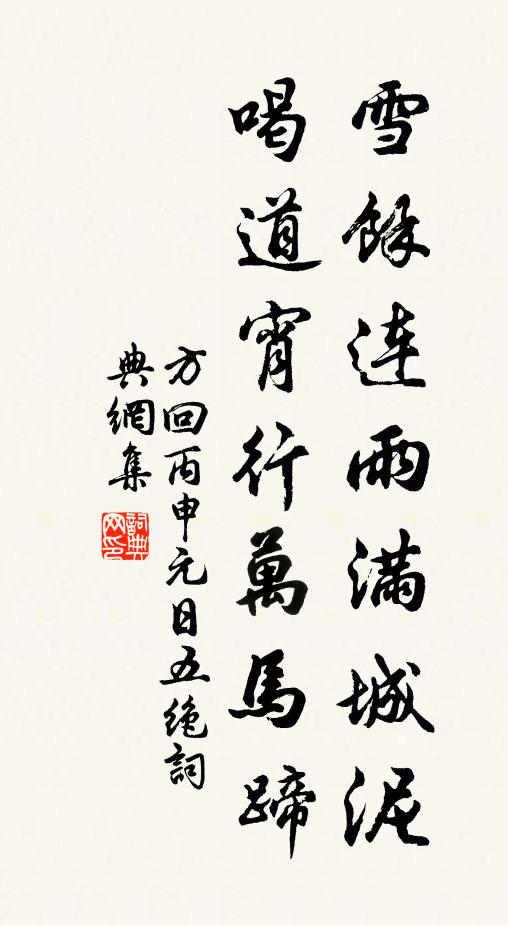 雪馀连雨满城泥
喝道宵行萬馬蹄
方回丙申元日五绝詞
典網集
詞典
网印